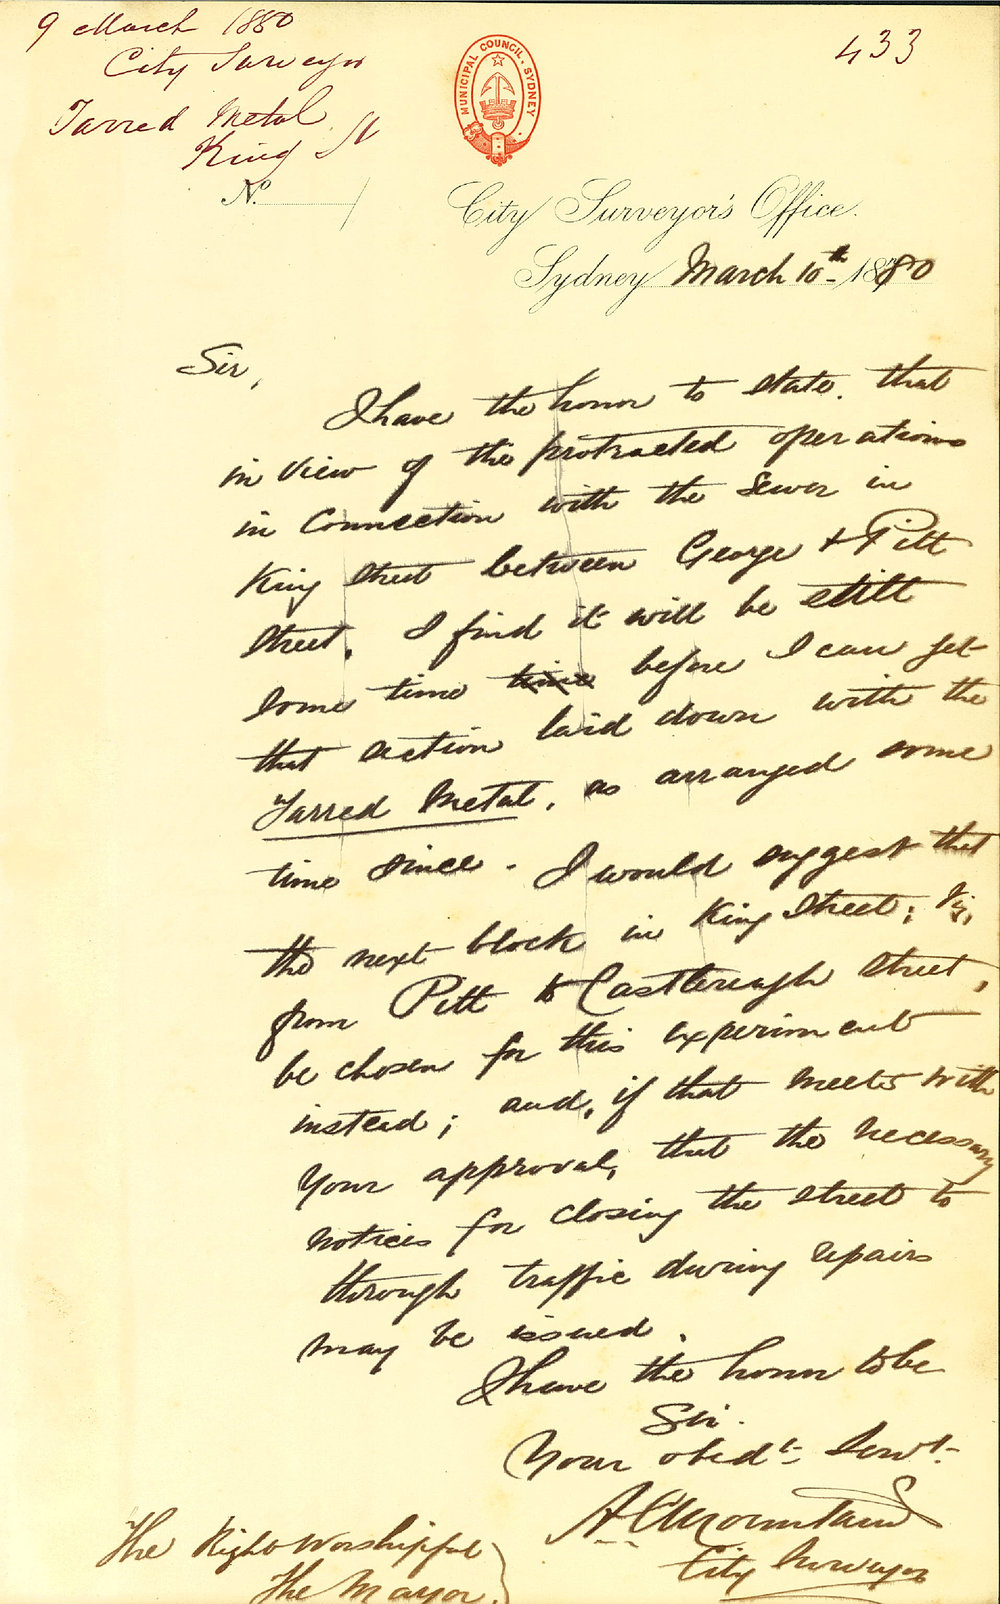 9 March 1880
City Surveyor
Tarred Metal
King St
433
MUNICIPAL COUNCIL. SYDNEY
No.
City Surveyor's Office.
Sydney March 10th 1880
Sir,
I have the honor to state. that
in view of the protracted operations
in Connection with the Sewer in
King Street between George & Pitt
Street, I find it will be still
some time time before I can get
that section laid down with the
Tarred Metal, as arranged some
time since. I would suggest that
the next block in King Street; Viz,
from Pitt to Castlereagh Street,
be chosen for this experiment
instead; and, if that meets with
Your approval, that the necessary
notices for closing the street to
through traffic during repairs
may be issued.
I have the honor to be
Sir.
Your obedt. Servt.
A C Mountain
City Surveyor
The Right Worshipful
The Mayor.